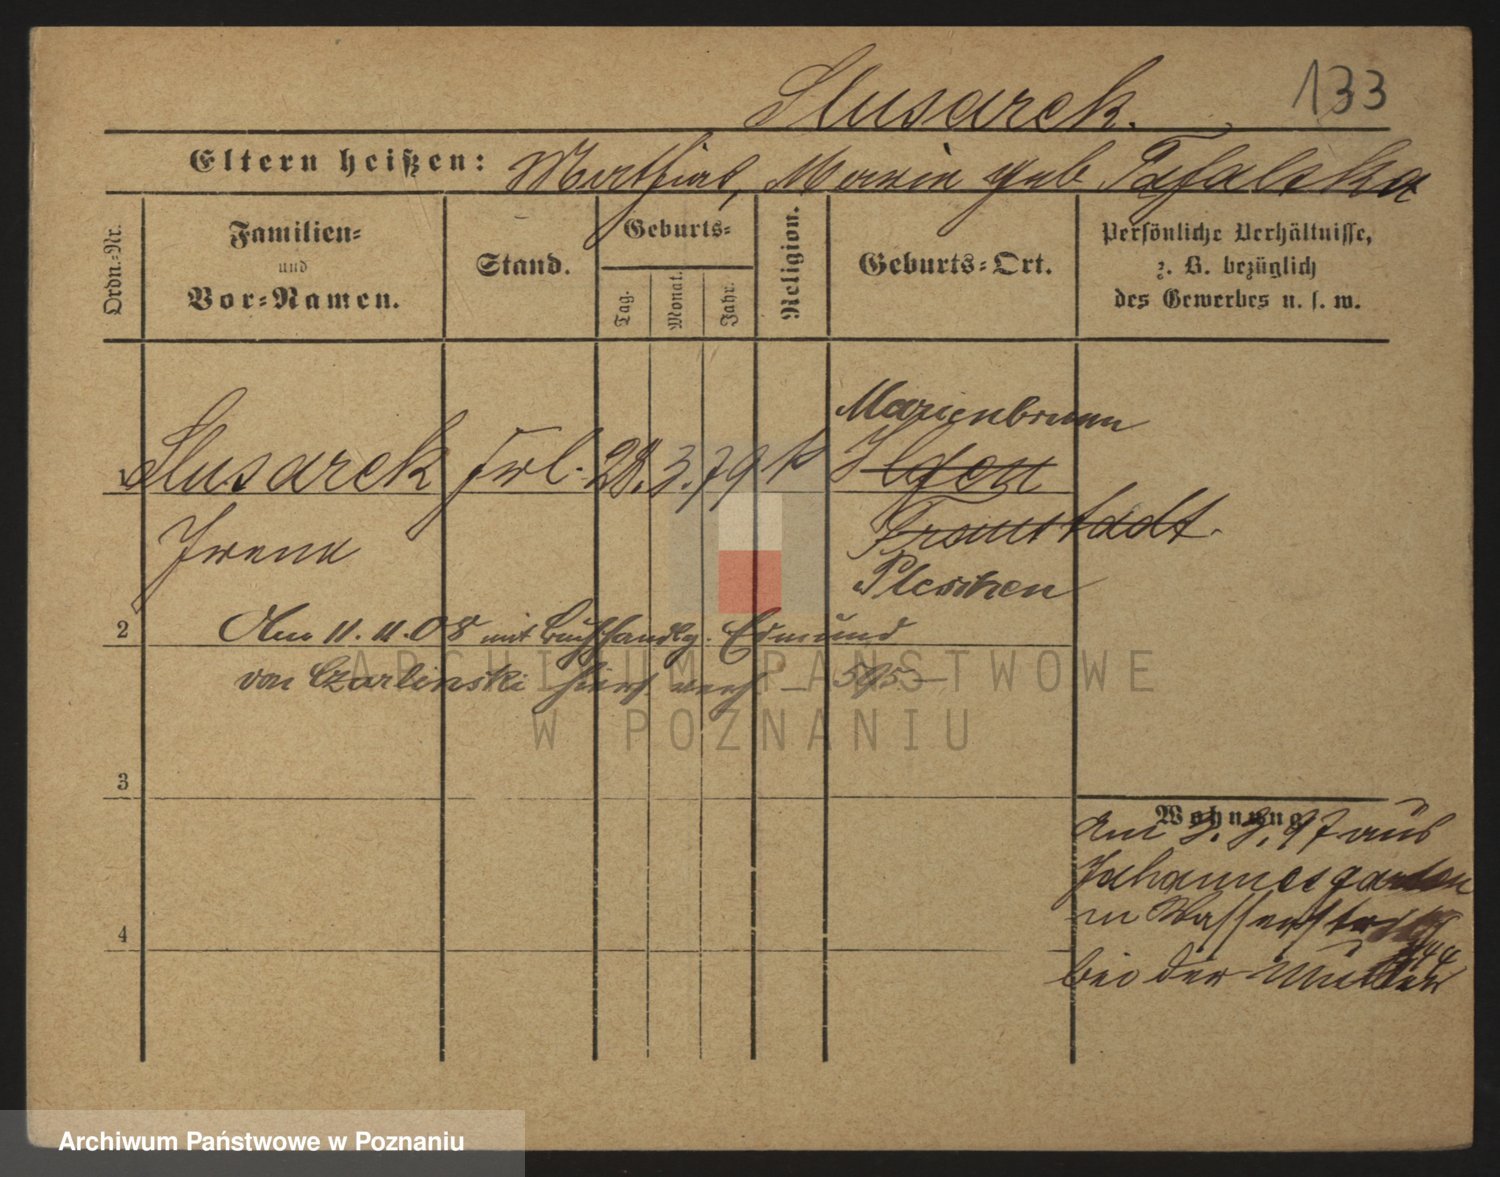 133
Slusarek.
Eltern heißen: Matthias, Marie geb Tafalska
Ordn.-Nr.
Familien-
und
Vor-Namen.
Stand.
Geburts-
Tag.
Monat.
Jahr.
Religion.
Geburts-Ort.
Persönliche Verhältnisse,
z. B. bezüglich
des Gewerbes u. s. w.
Marienbrunn
1 Slusarek Frl. 28. 3. 79 k Ilgen
Irena Fraustadt.
Pleschen
2 Am 11. 11. 08 mit Buchhandlg. Edmund
von Czarlinski hier verh – 595 –
ARCHIWUM PAŃSTWOWE
W POZNANIU
3
Wohnung
am 97 aus
Johannesgarten
n Wasserstr
4
44
bei der Mutter
Archiwum Państwowe w Poznaniu